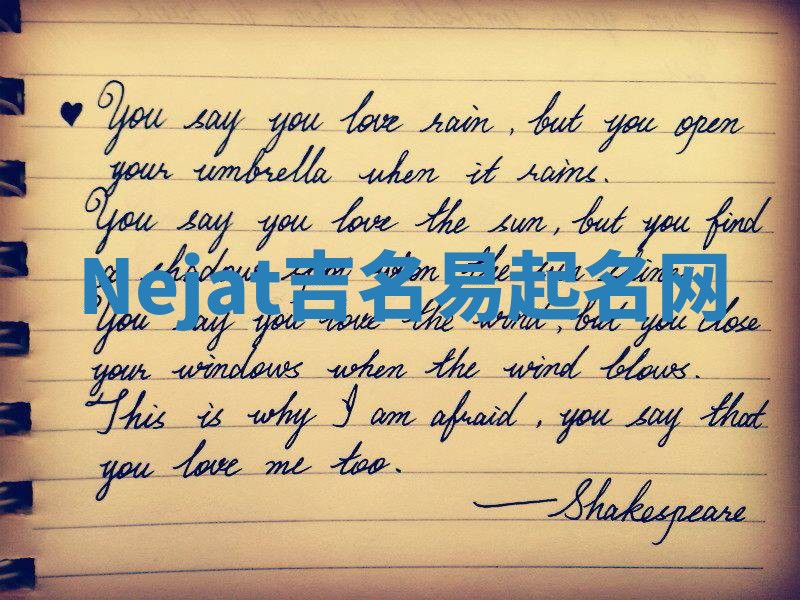 You say you love rain, but you open
your umbrella when it rains.
You say you love the sun, but you find
a shadow when the sun shines.
Nejat吉名易起名网
You say you love the wind, but you close
your windows when the wind blows.
This is why I am afraid, you say that
you love me too.
—Shakespeare